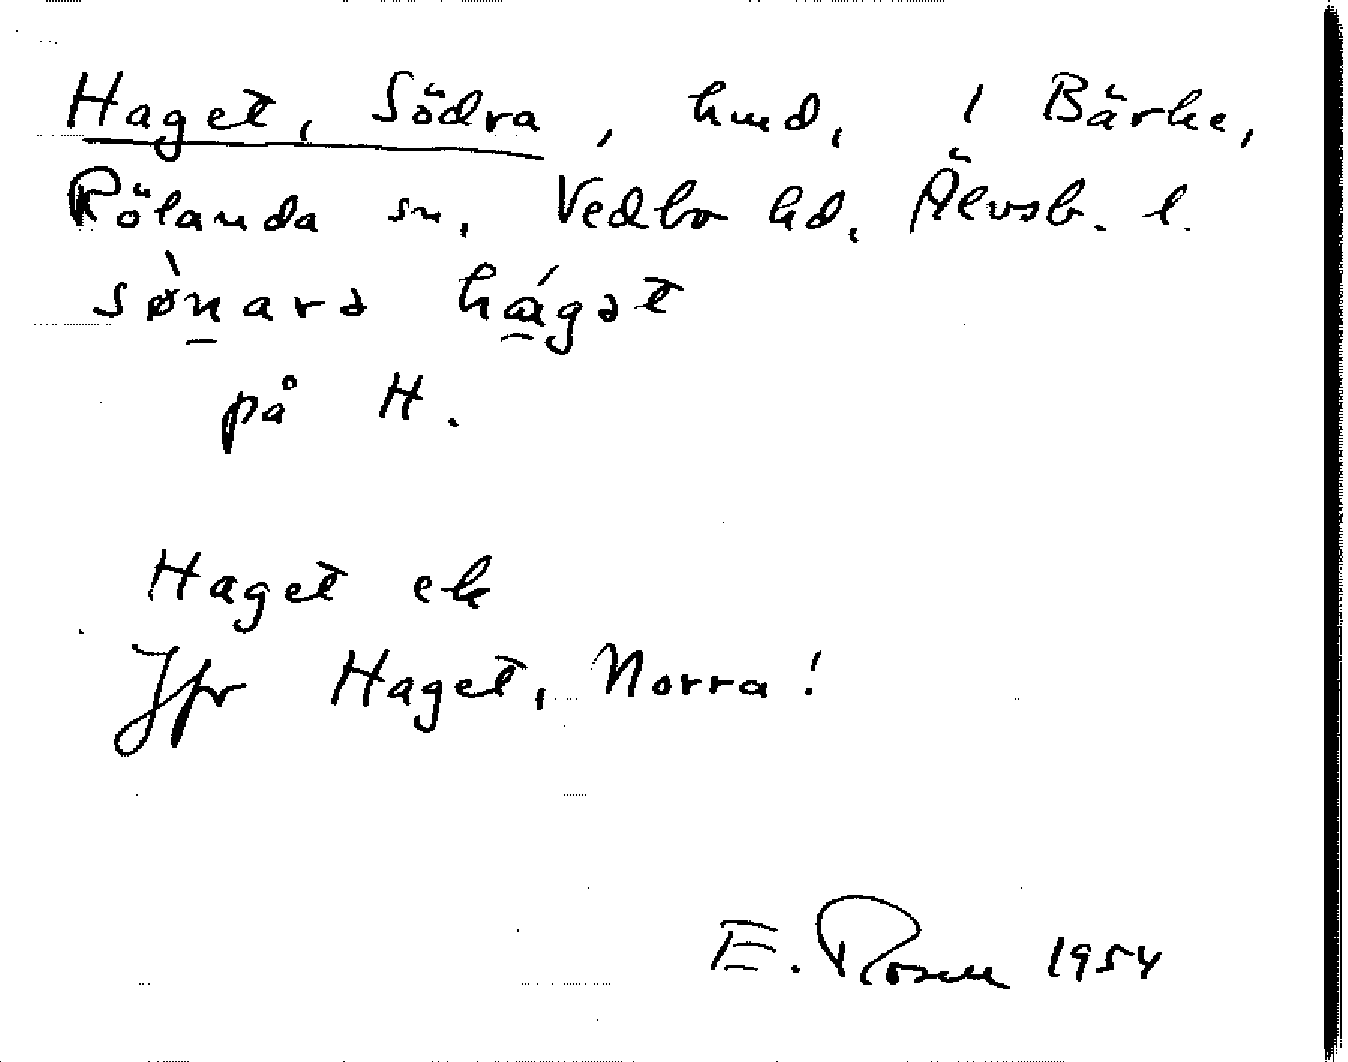 Haget, Södra, hmd, i Bärke,
Rölanda sn, Vedbo hd, Älvsb. l.
sø̀n̲arə há̲gət
på H.
Haget ek
Jfr Haget, Norra!
E. Rosen 1954